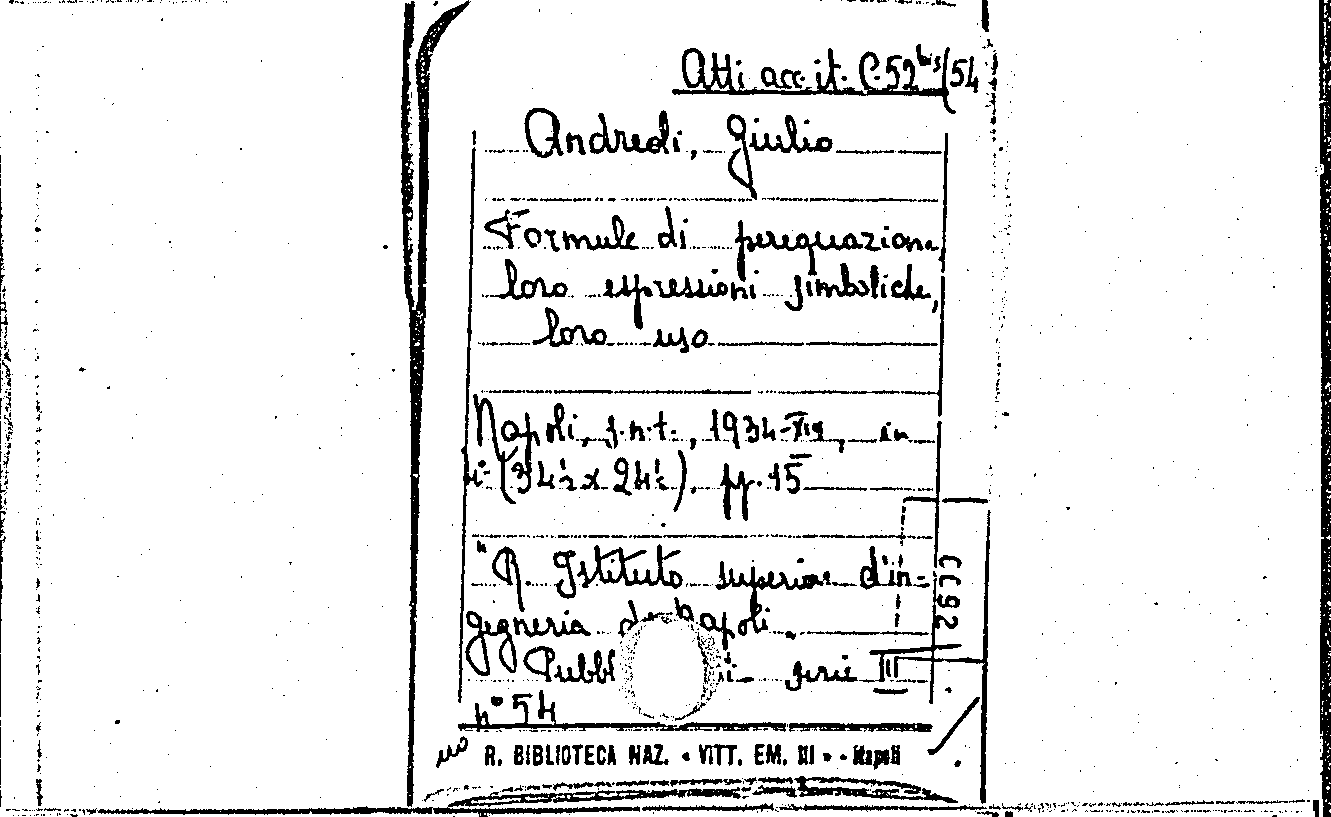 Atti acc. it. C. 52 bis (54
Andreoli, Giulio
Formule di perequazione,
loro espressioni simboliche,
loro uso
Napoli, s.n.t., 1934-XIII, in
4° (34½ x 24½). pp. 15
"R. Istituto superiore d'in-
gegneria di Napoli.
serie III
n° 54
R. BIBLIOTECA NAZ. « VITT. EM. III » - Napoli